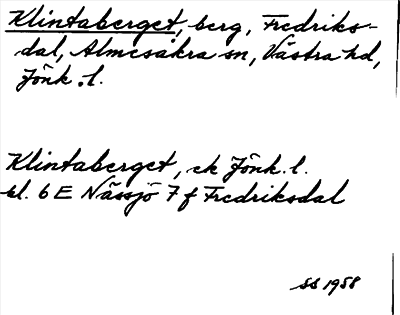 Klintaberget, berg, Fredriks-
dal, Almesåkra sn, Västra hd,
Jönk. l.
Klintaberget, ek Jönk. l.
bl. 6 E Nässjö 7 f Fredriksdal
SS 1958